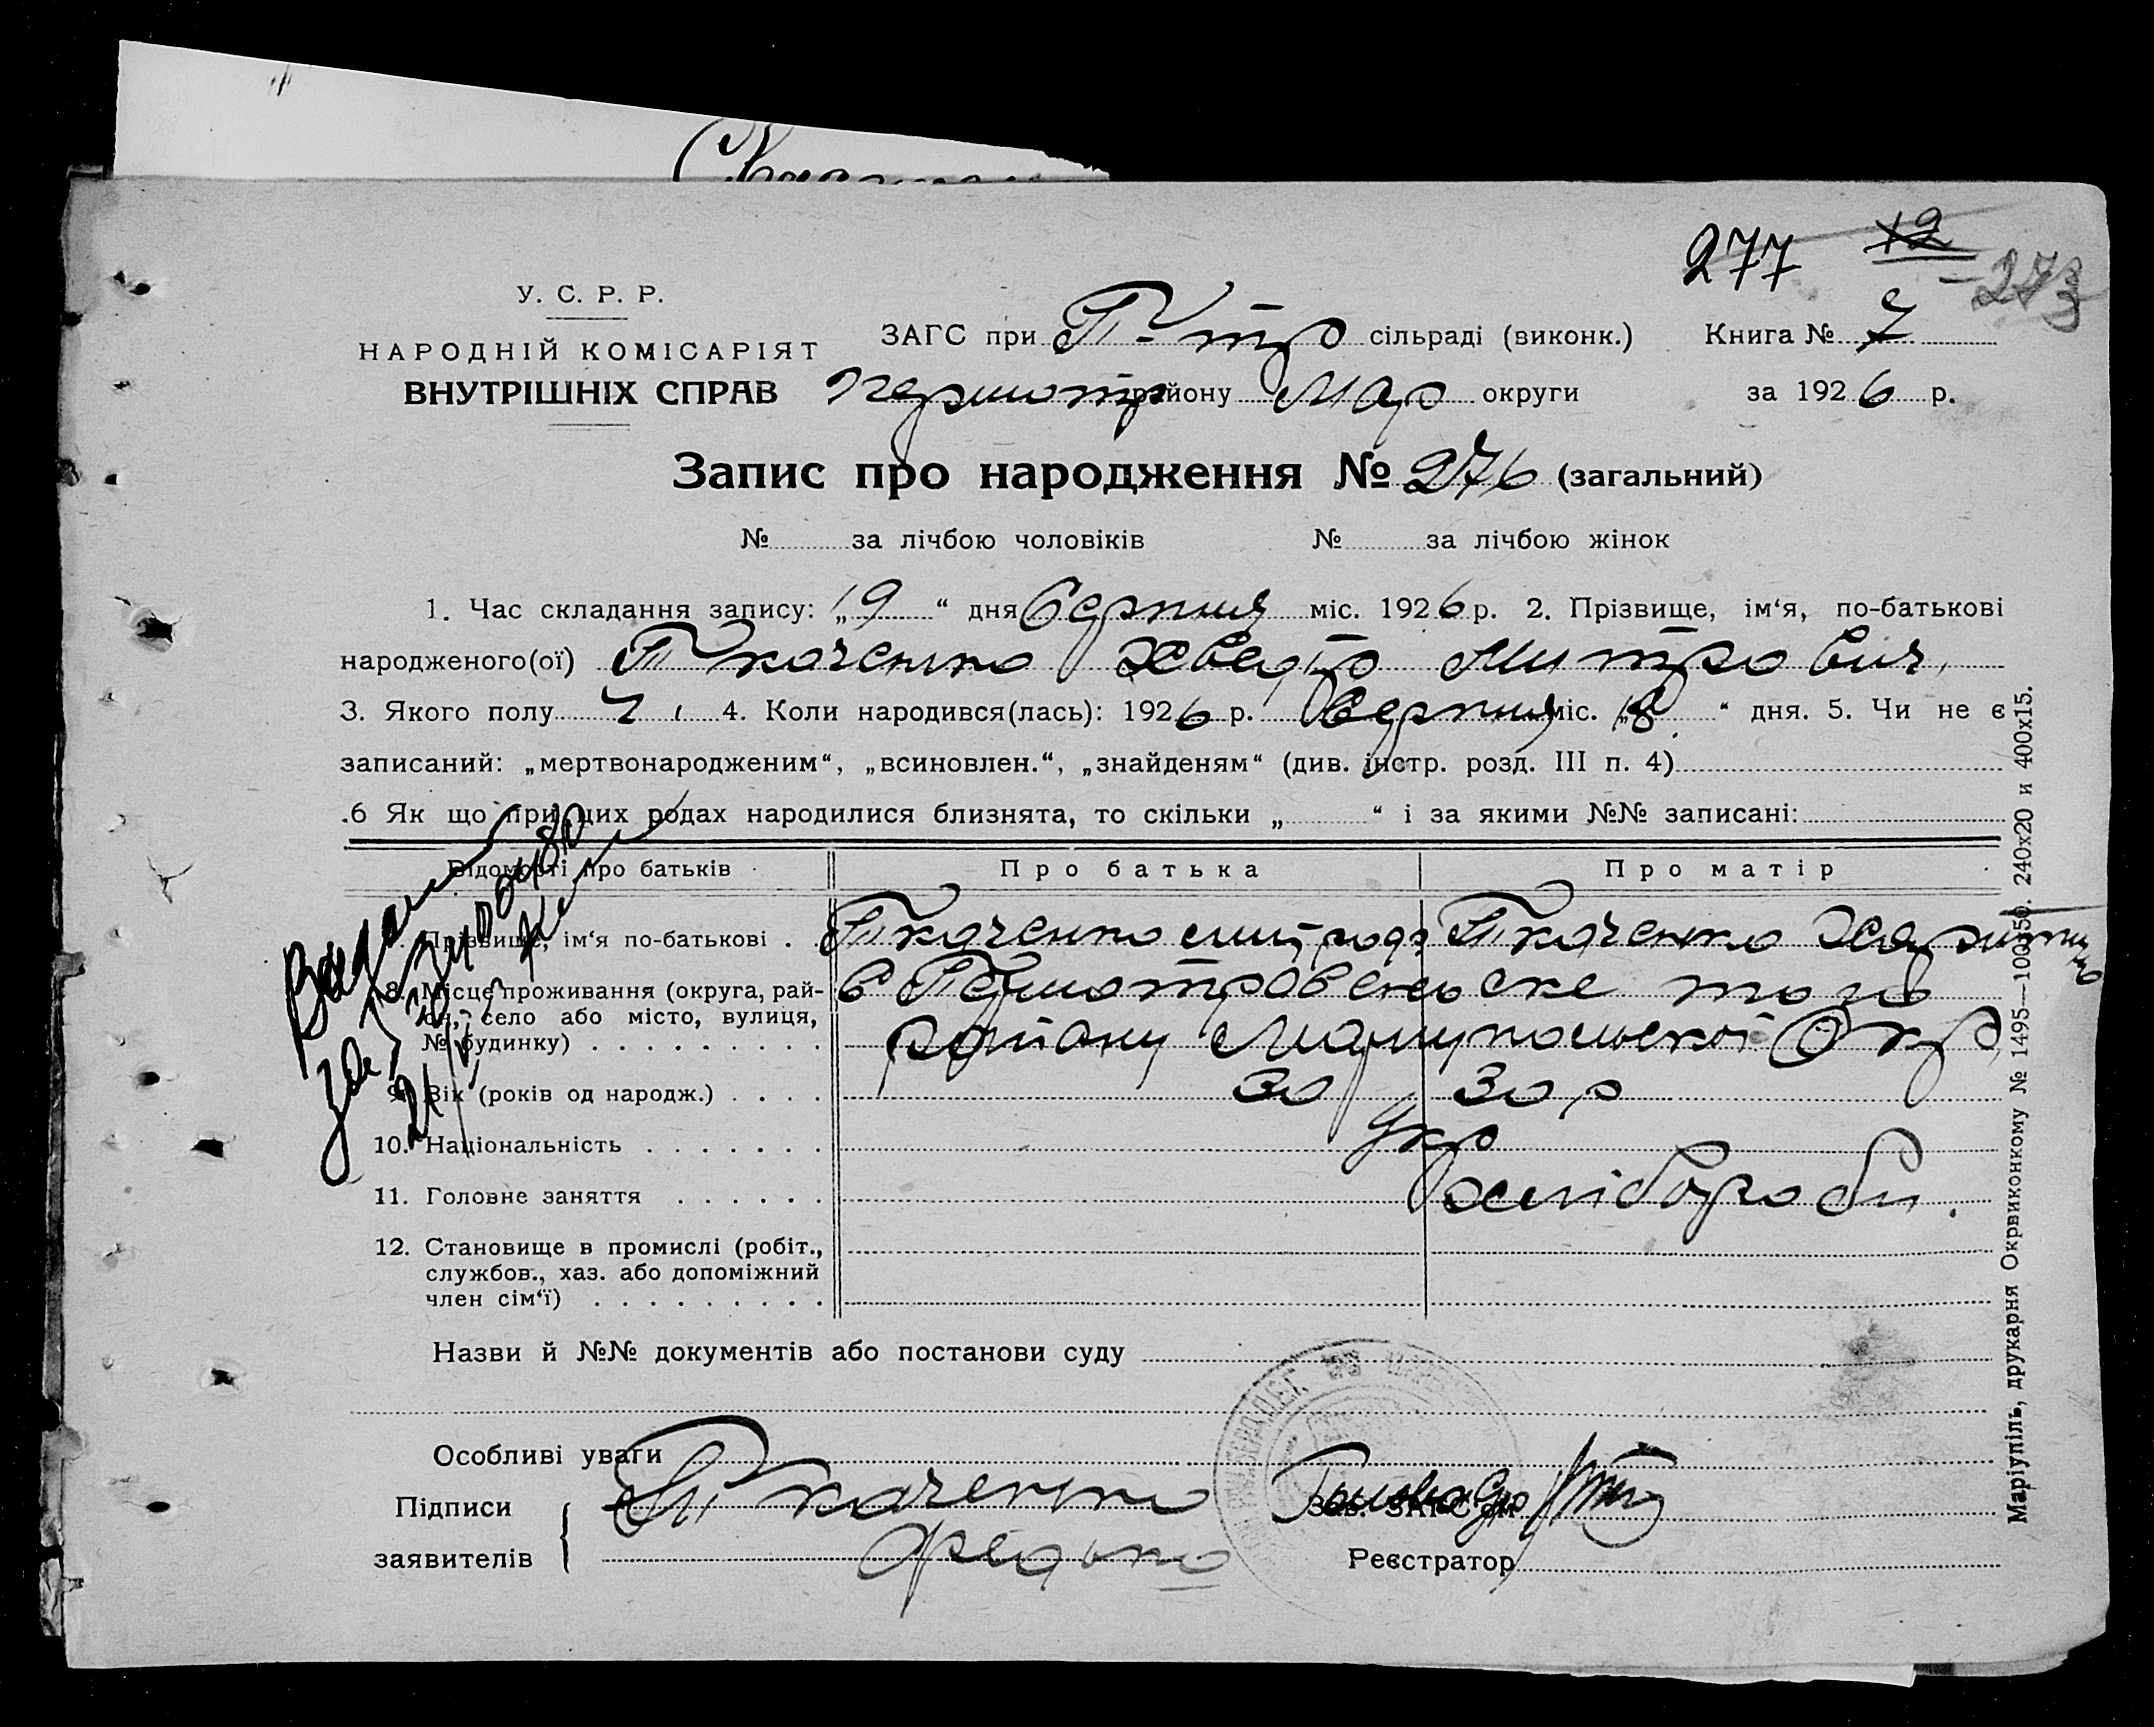 277 12 -273
У. С. Р. Р.
НАРОДНІЙ КОМІСАРІЯТ
ВНУТРІШНІХ СПРАВ
ЗАГС при П-тр сільраді (виконк.) Книга № 7
Першотр району Мар округи за 1926 р.
Запис про народження № 276 (загальний)
№ за лічбою чоловіків № за лічбою жінок
1. Час складання запису: „19“ дня Серпня міс. 1926 р. 2. Прізвище, ім‘я, по-батькові
народженого(ої) Ткаченко Хведір Митрович,
3. Якого полу Ч. 4. Коли народився(лась): 1926 р. Серпня міс. „18“ дня. 5. Чи не є
записаний: „мертвонародженим“, „всиновлен.“, „знайденям“ (див. інстр. розд. III п. 4)
.6 Як що при цих родах народилися близнята, то скільки „ “ і за якими №№ записані:
Відомості про батьків Про батька Про матір
7. Прізвище, ім‘я по-батькові . Ткаченко Ткаченко
8. Місце проживання (округа, рай-
он, село або місто, вулиця,
№ будинку) . . . . . . . . .
в Першотравенське того
району Маріупольскої Окр
9. Вік (років од народж.) . . . . 30 30 р
10. Національність . . . . . . . Укр
11. Головне заняття . . . . . . хліборобы.
12. Становище в промислі (робіт.,
службов., хаз. або допоміжний
член сім‘ї) . . . . . . . . .
Назви й №№ документів або постанови суду
Особливі уваги
Підписи
заявителів
Ткаченко
Зав. ЗАГС‘ом
Реєстратор
Маріупіль, друкарня Окрвиконкому № 1495—100х50. 240х20 и 400х15.